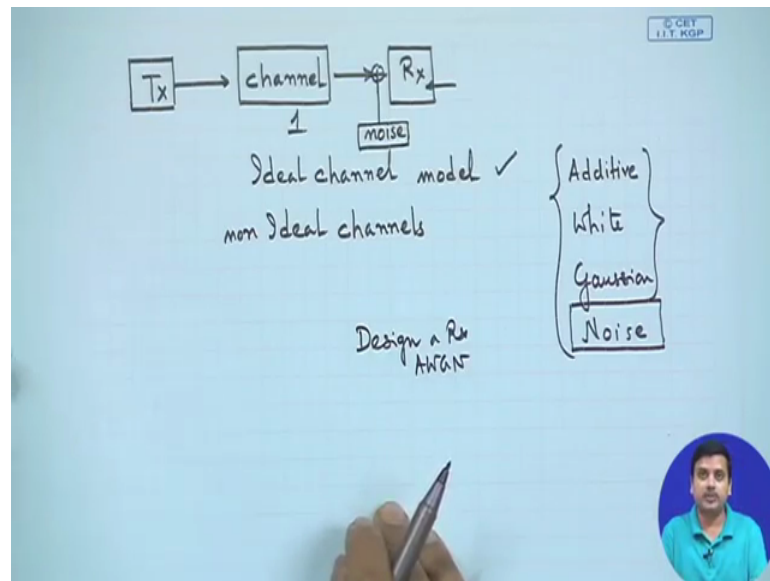 © CET
I.I.T. KGP
Tx
channel
Rx
1
noise
Ideal channel model ✓
non Ideal channels
Additive
White
Gaussian
Noise
Design a Rx
AWGN